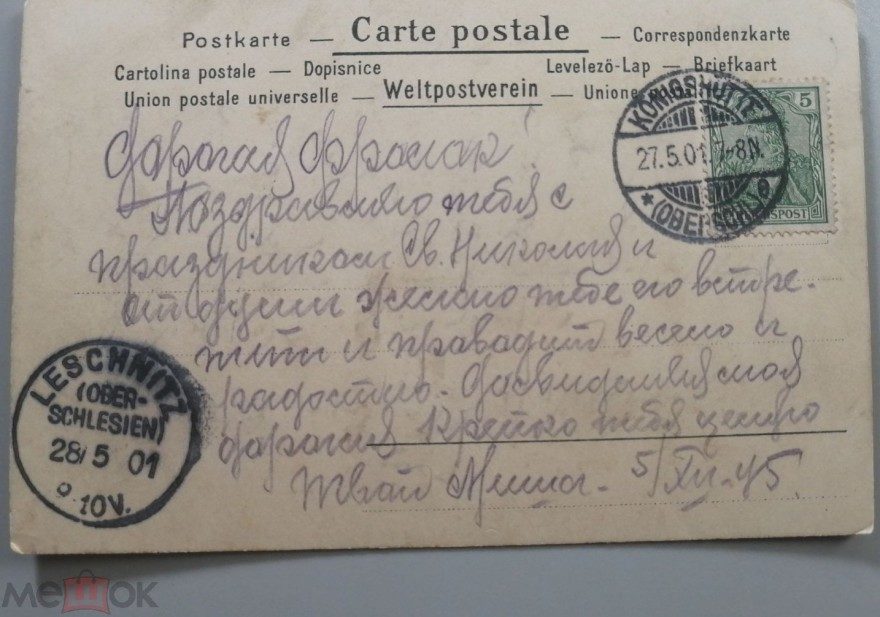 Postkarte — Carte postale — Correspondenzkarte
Cartolina postale — Dopisnice Levelező-Lap — Briefkaart
Union postale universelle — Weltpostverein — Unione
KÖNIGSHÜTTE
27.5.01. 7-8N.
* (OBERSCHL) *
5
Дарагая
Поздравляю тебя с
праздником Св. Николая и
от души желаю тебе его встре-
тить и правадить весело и
радостно. Досвидания моя
дарагая Крепко тебя целую
твай Миша. 5/XII-45
LESCHNITZ
(OBER-
SCHLESIEN)
28/5 01
10V.
МЕШОК